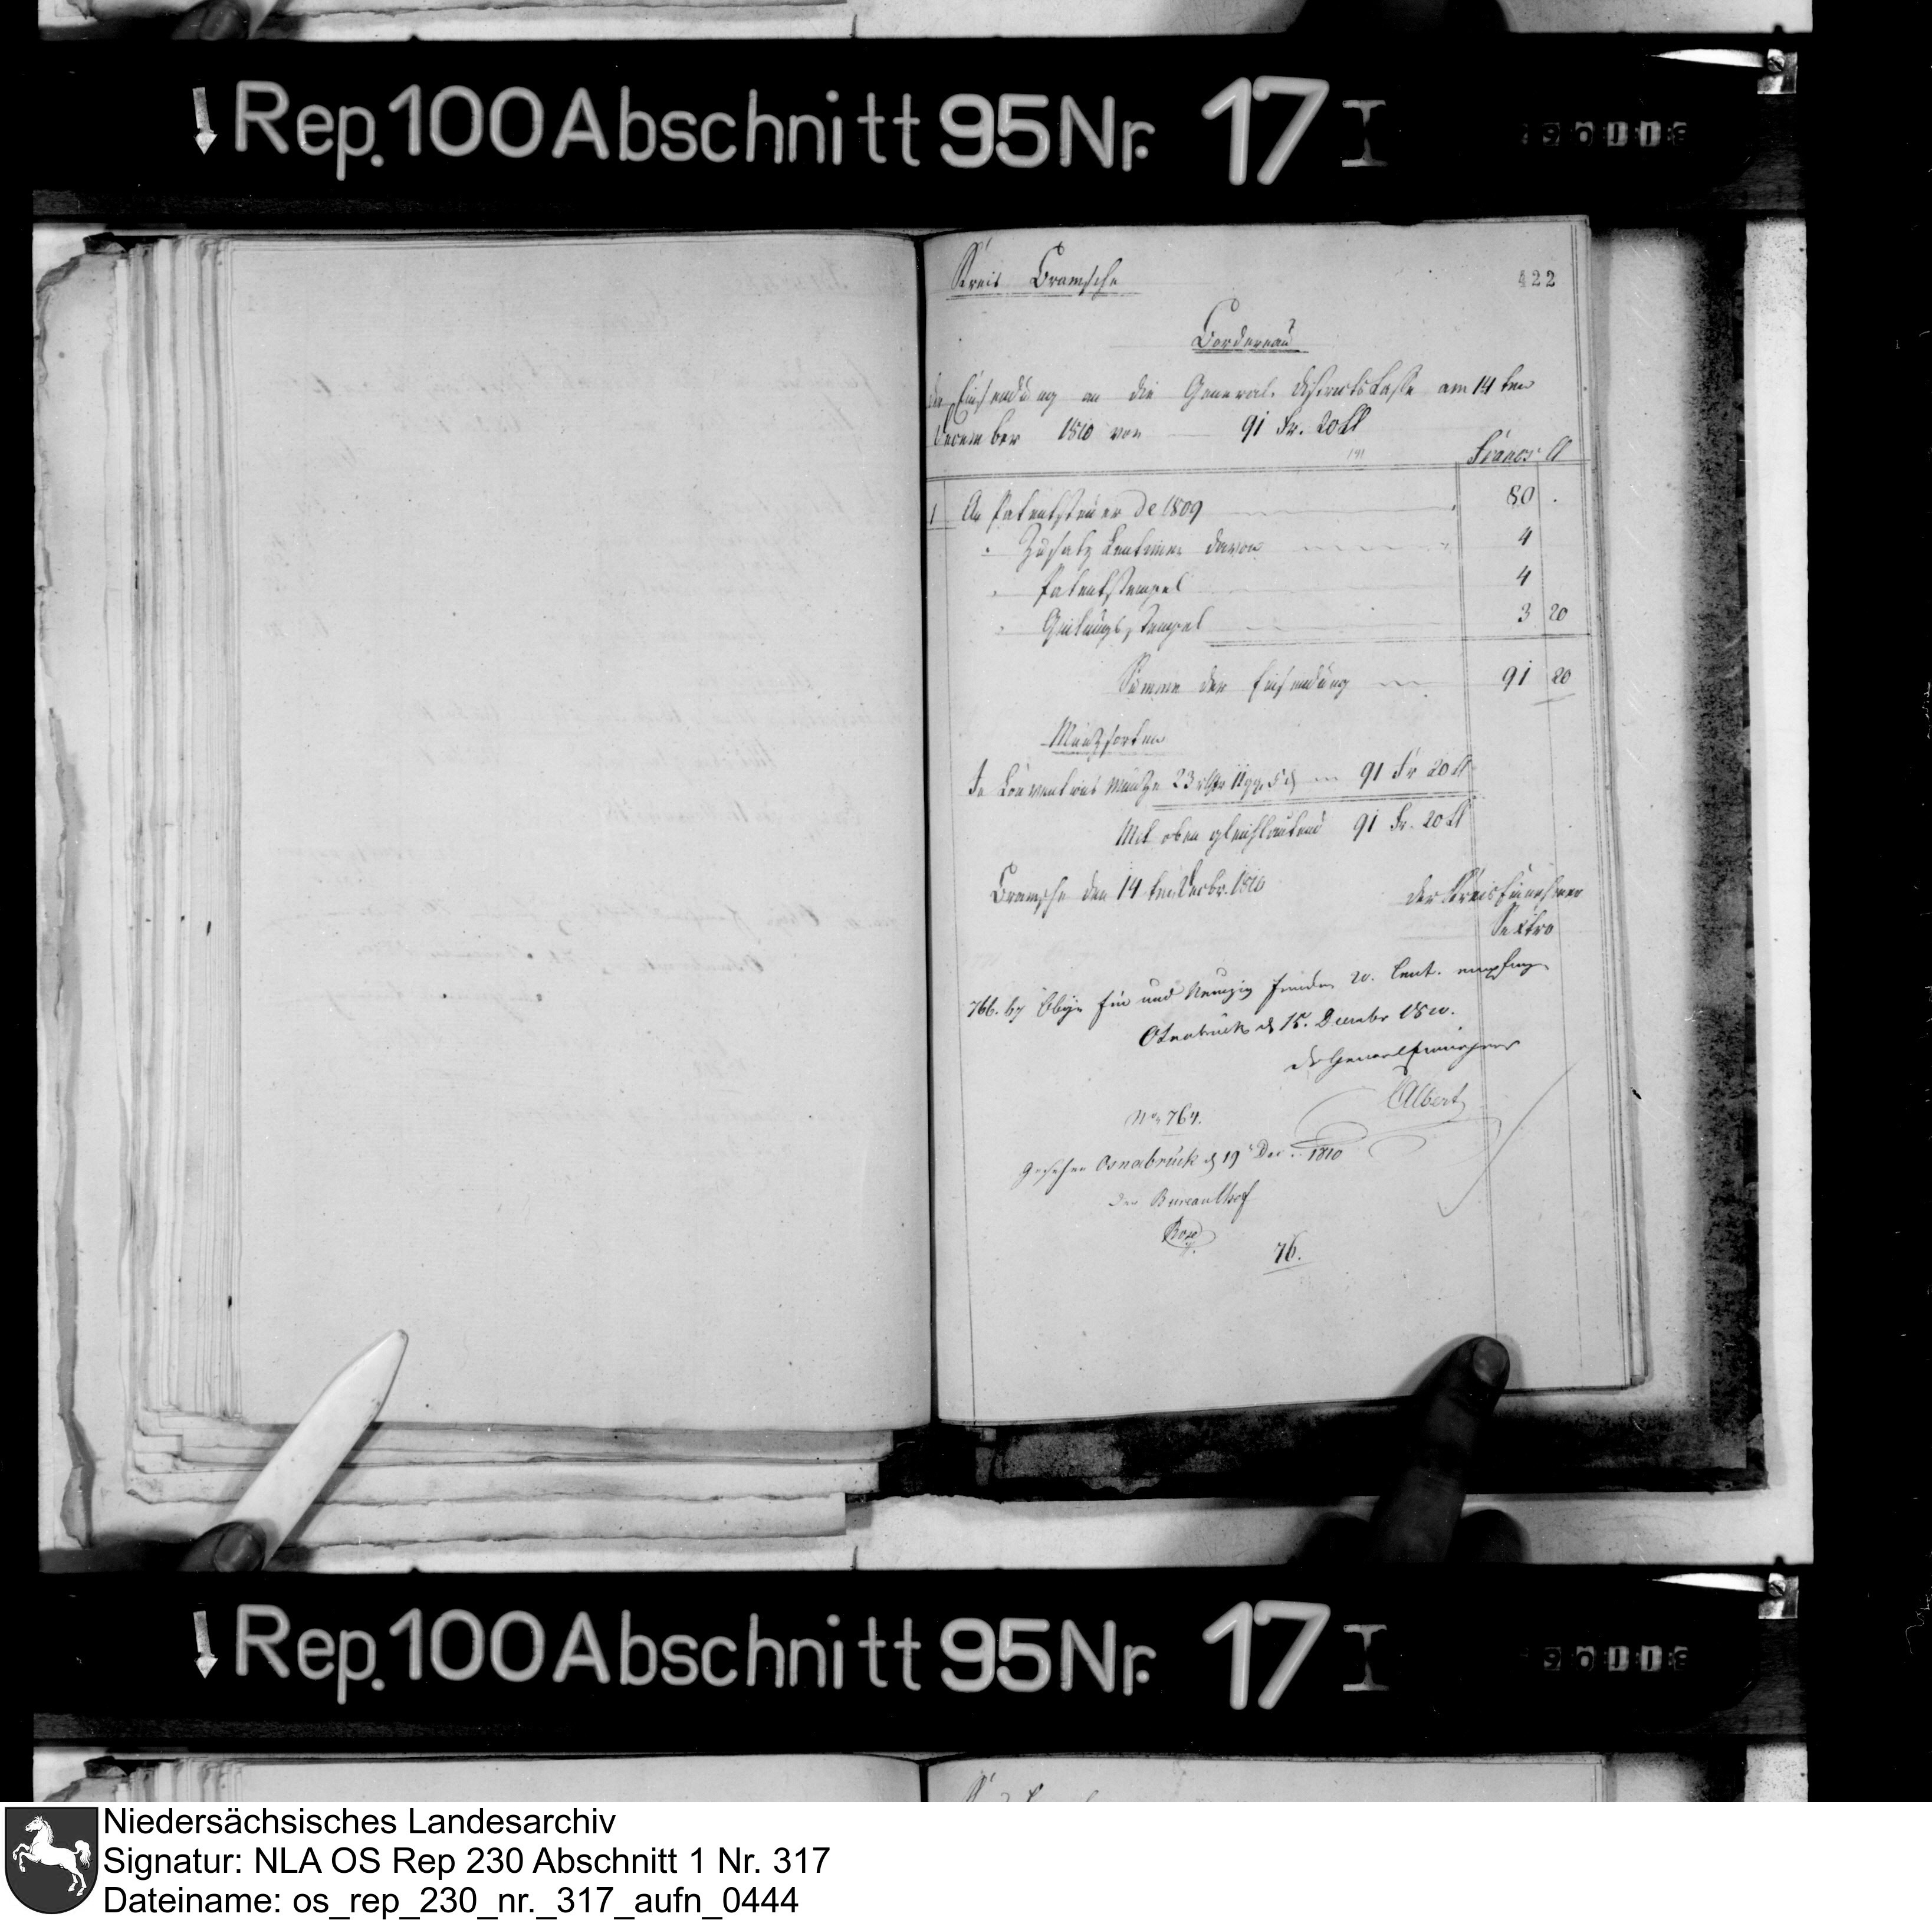 Rep. 100 Abschnitt 95 Nr. 17 I
Kreis Bramsche
422
Bordereau
der Einsendung an die General. Districts Casse am 14 ten
December 1810 von 91 Fr. 20 Ct
Francs Ct
1 An Patentsteuer de 1809 80 .
" Zusatz Centimen davon 4
" Patentstempel 4
" Quitungs Stempel 3 20
Summe der Einsendung 91 20
Münzsorten
In Conventions Münze 23 rthr 11 gg. 5 d 91 Fr 20 Ct
Mit oben gleichlautend 91 Fr. 20 Ct
Bramsche den 14 ten Decbr. 1810
der Kreis Einnehmer
Sextro
766. Obige Ein und Neunzig Franken 20. Cent. empfing
Osnabrück d 15. Decembr 1810.
der Generaleinnehmer
Albert
No 764.
Gesehen Osnabrück d 19 Dec. 1810
Der Bureau Chef
76.
Rep. 100 Abschnitt 95 Nr. 17 I
Niedersächsisches Landesarchiv
Signatur: NLA OS Rep 230 Abschnitt 1 Nr. 317
Dateiname: os_rep_230_nr._317_aufn_0444